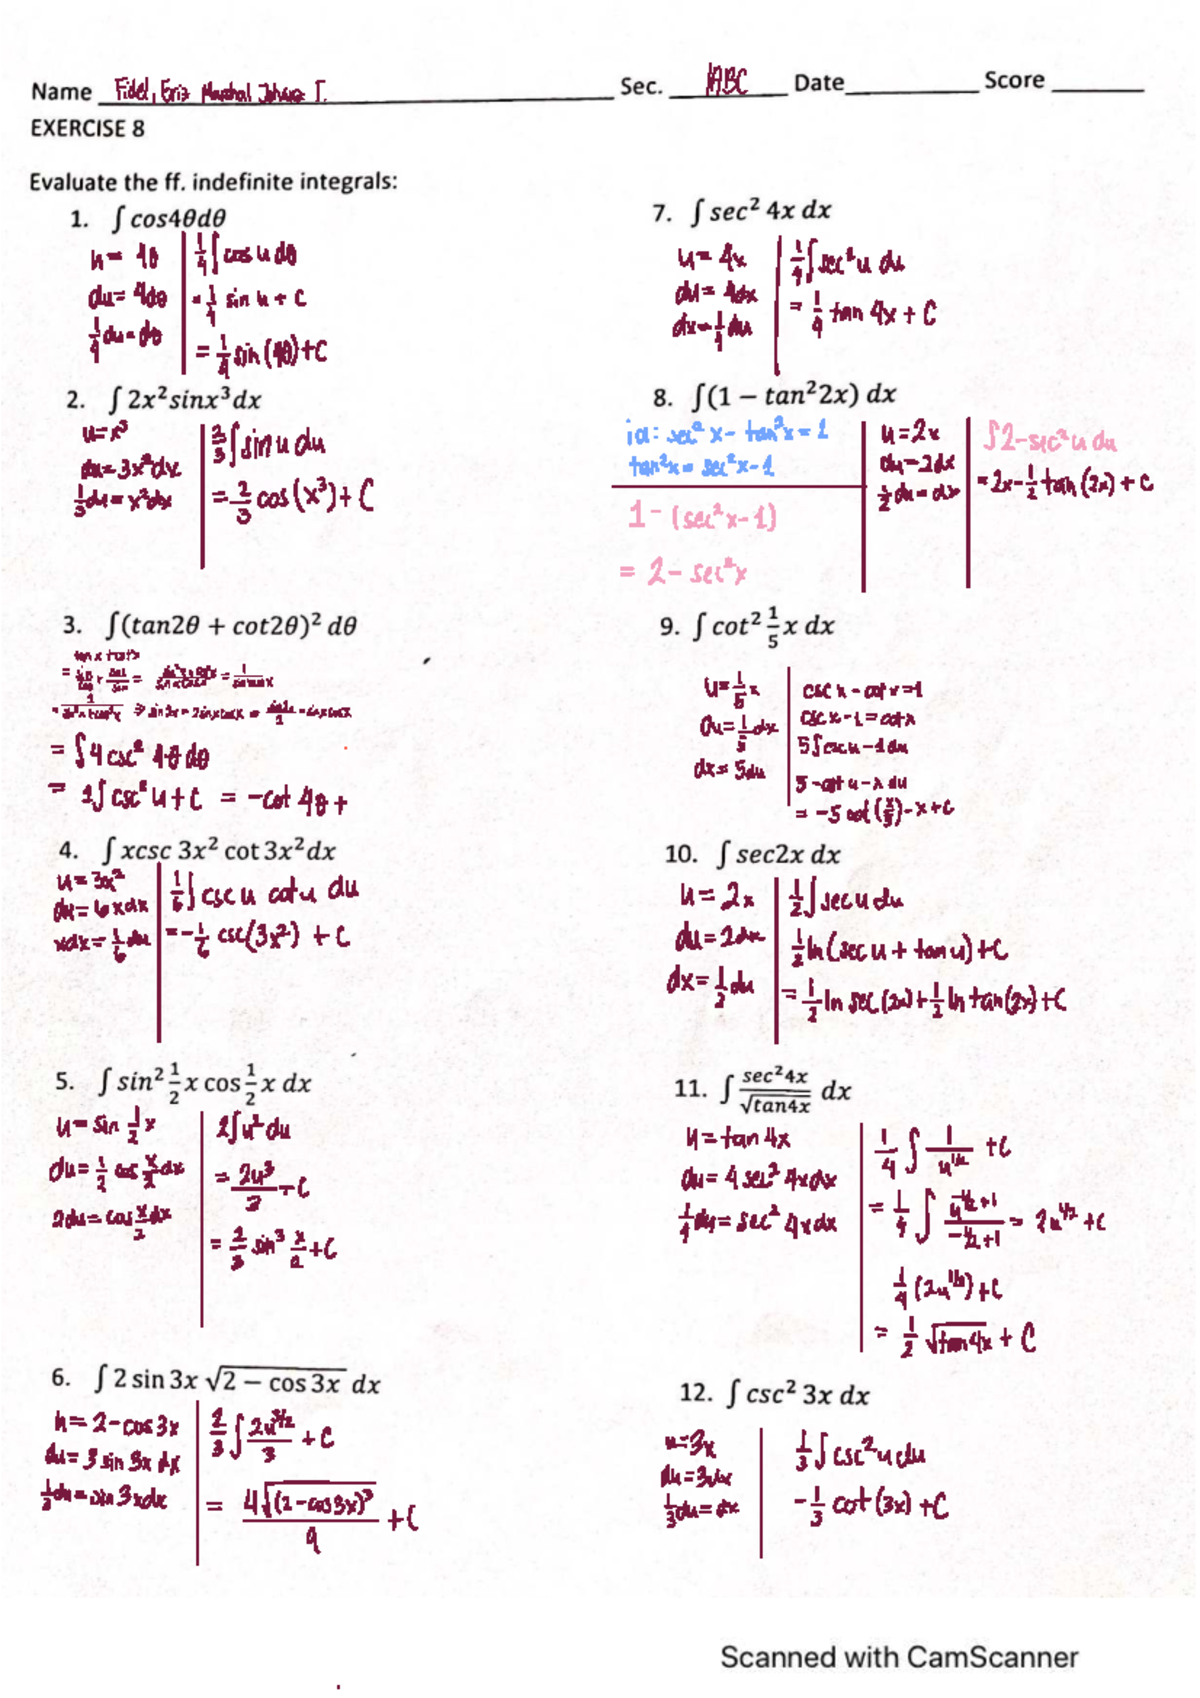 Name Fidel, Eriz Marshal Johanz T. Sec. 1ABC Date Score
EXERCISE 8
Evaluate the ff. indefinite integrals:
1. ∫ cos4θdθ
u = 4θ
du = 4dθ
1/4 du = dθ
1/4 ∫ cos u dθ
= 1/4 sin u + C
= 1/4 sin (4θ) + C
2. ∫ 2x² sinx³ dx
u = x³
du = 3x²dx
1/3 du = x²dx
2/3 ∫ sin u du
= 2/3 cos (x³) + C
3. ∫(tan2θ + cot2θ)² dθ
= ∫ 4 csc² 4θ dθ
= 1∫ csc² u + C = -cot 4θ +
4. ∫ xcsc 3x² cot 3x² dx
u = 3x²
du = 6xdx
xdx = 1/6 du
1/6 ∫ csc u cot u du
= -1/6 csc(3x²) + C
5. ∫ sin² 1/2 x cos 1/2 x dx
u = sin 1/2 x
du = 1/2 cos x/2 dx
2du = cos x/2 dx
2∫u² du
= 2u³/3 + C
= 2/3 sin³ x/2 + C
6. ∫ 2 sin 3x √(2 − cos 3x) dx
u = 2 - cos 3x
du = 3 sin 3x dx
1/3 du = sin 3xdx
2/3 ∫ 2u^3/2 / 3 + C
= 4√(2-cos3x)³ / 9 + C
7. ∫ sec² 4x dx
u = 4x
du = 4dx
dx = 1/4 du
1/4 ∫ sec² u du
= 1/4 tan 4x + C
8. ∫(1 − tan² 2x) dx
id: sec² x - tan² x = 1
tan² x = sec² x - 1
1 - (sec² x - 1)
= 2 - sec² x
u = 2x
du = 2dx
1/2 du = dx
∫2 - sec² u du
= 2x - 1/2 tan (2x) + C
9. ∫ cot² 1/5 x dx
u = 1/5 x
du = 1/5 dx
dx = 5du
csc x - cot x = 1
csc x - 1 = cot x
5∫csc u - 1 du
5 -cot u - x du
= -5 cot (x/5) - x + C
10. ∫ sec2x dx
u = 2x
du = 2dx
dx = 1/2 du
1/2 ∫ sec u du
1/2 ln (sec u + tan u) + C
= 1/2 ln sec (2x) + 1/2 ln tan (2x) + C
11. ∫ sec² 4x / √tan4x dx
u = tan 4x
du = 4 sec² 4x dx
1/4 du = sec² 4x dx
1/4 ∫ 1/u^1/2 + C
= 1/4 ∫ u^-1/2+1 / -1/2+1 = 2u^1/2 + C
1/4 (2u^1/2) + C
= 1/2 √tan4x + C
12. ∫ csc² 3x dx
u = 3x
du = 3dx
1/3 du = dx
1/3 ∫ csc² u du
-1/3 cot (3x) + C
Scanned with CamScanner